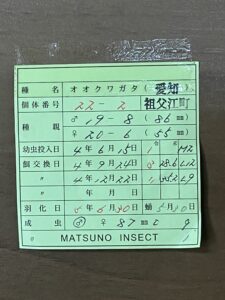 種名 オオクワガタ (愛知
個体番号 22-2 祖父江町
種親 ♂ 19-8 (86 mm)
♀ 20-6 (55 mm)
幼虫投入日 4年6月15日 1令
餌交換日 4年9月24日 28.6
〃 4年12月22日
羽化日 5年6月30日 蛹 5月10日
成虫 ♂ ♀ 87 mm
MATSUNO INSECT